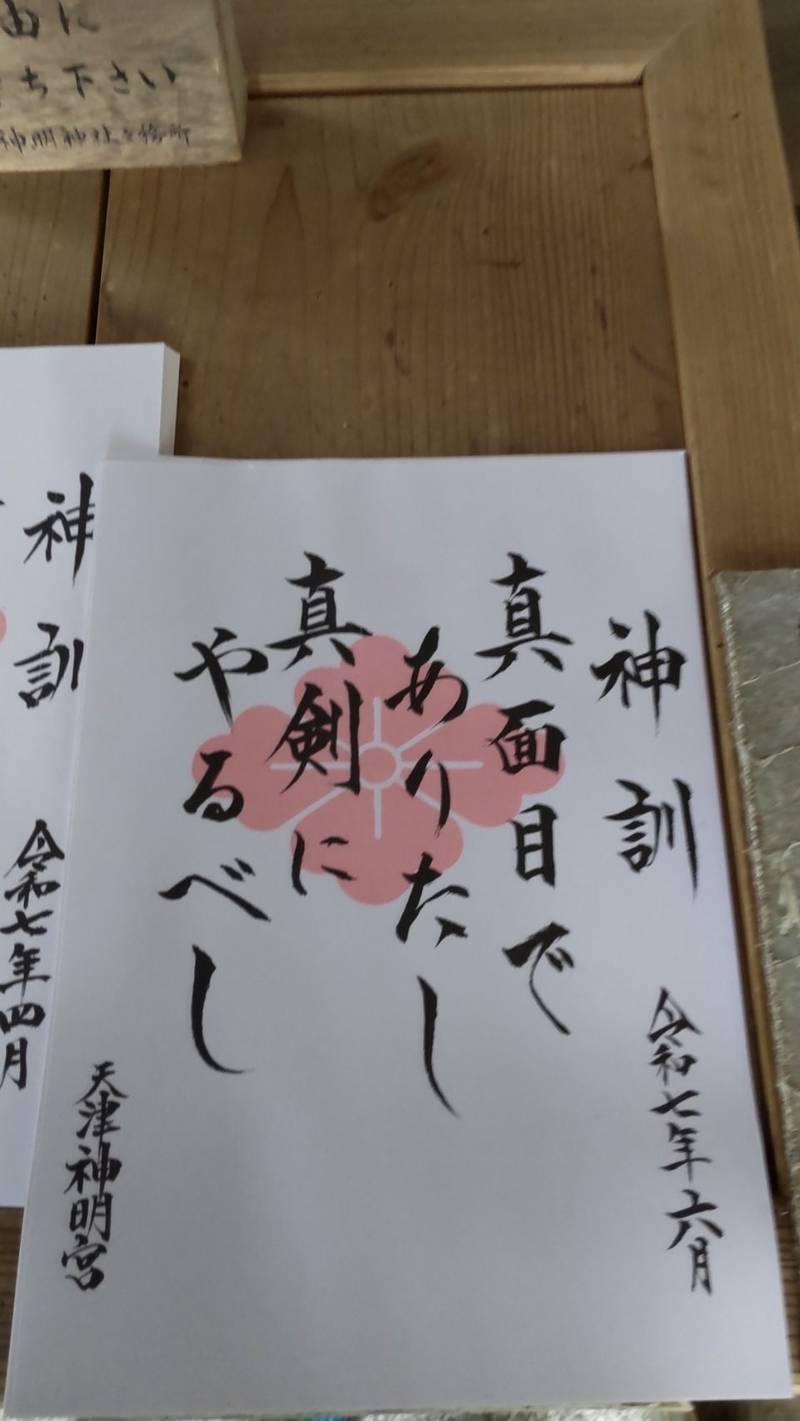 由に
ち下さい
神明神社社務所
神訓
令和七年六月
真面目で
ありたし
真剣に
やるべし
天津神明宮
神訓
令和七年四月